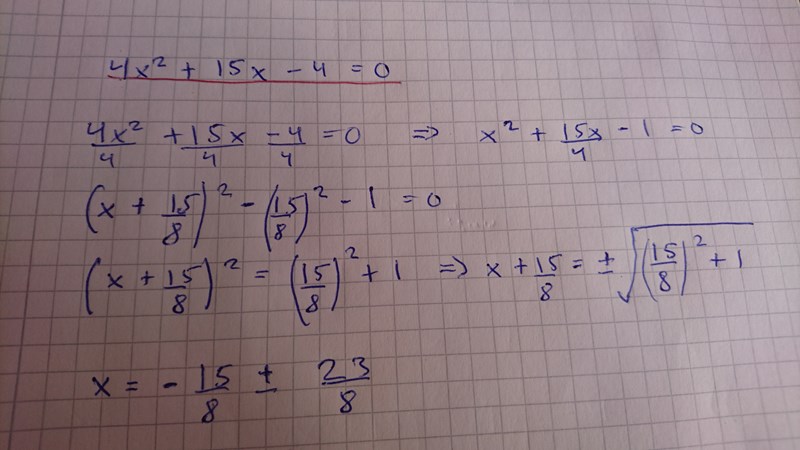 4x² + 15x - 4 = 0
4x²/4 + 15x/4 - 4/4 = 0 => x² + 15x/4 - 1 = 0
(x + 15/8)² - (15/8)² - 1 = 0
(x + 15/8)² = (15/8)² + 1 => x + 15/8 = ± √((15/8)² + 1)
x = - 15/8 ± 23/8